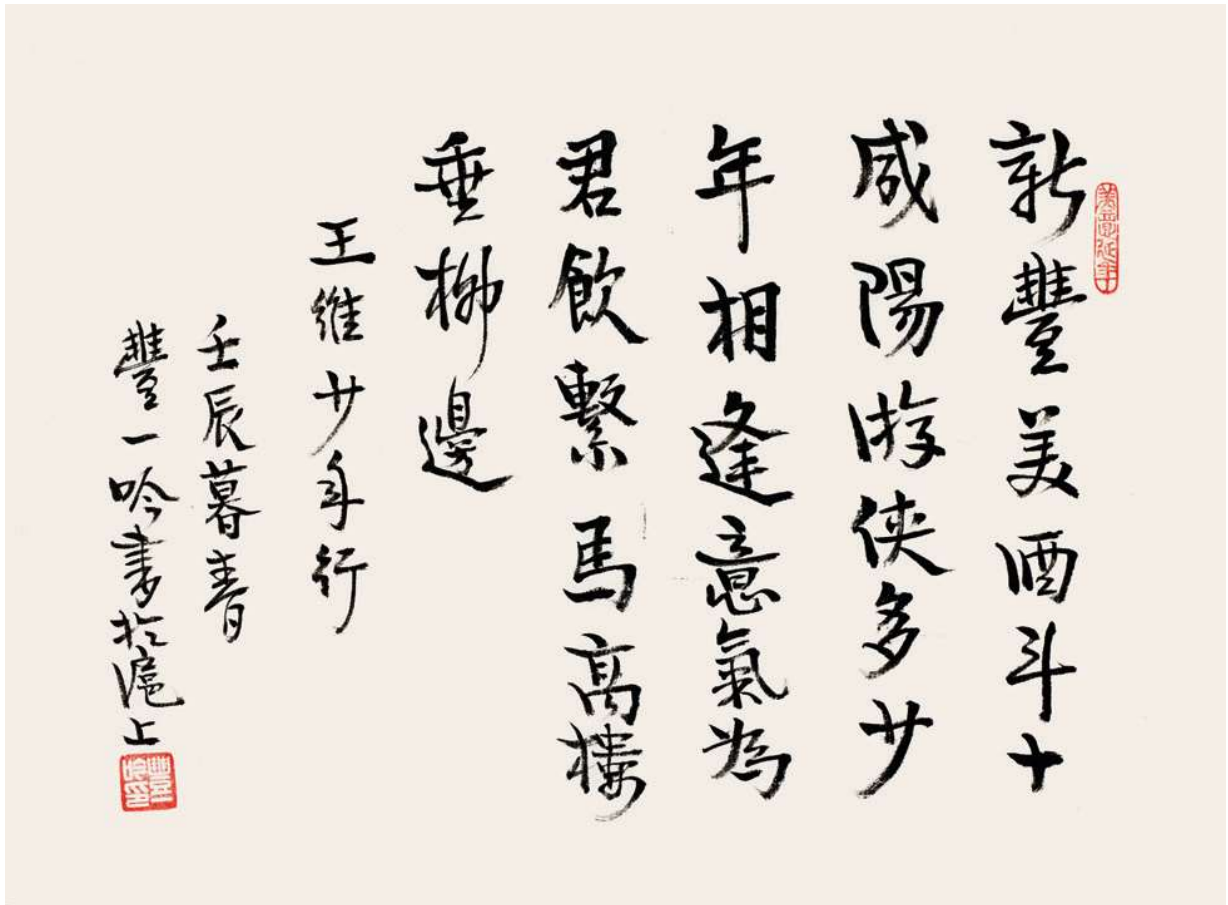 新豐美酒斗十
咸陽游俠多少
年相逢意氣為
君飲繫馬高樓
垂柳邊
王維少年行
壬辰暮春
豐一吟書於滬上
美意延年
豐一吟印